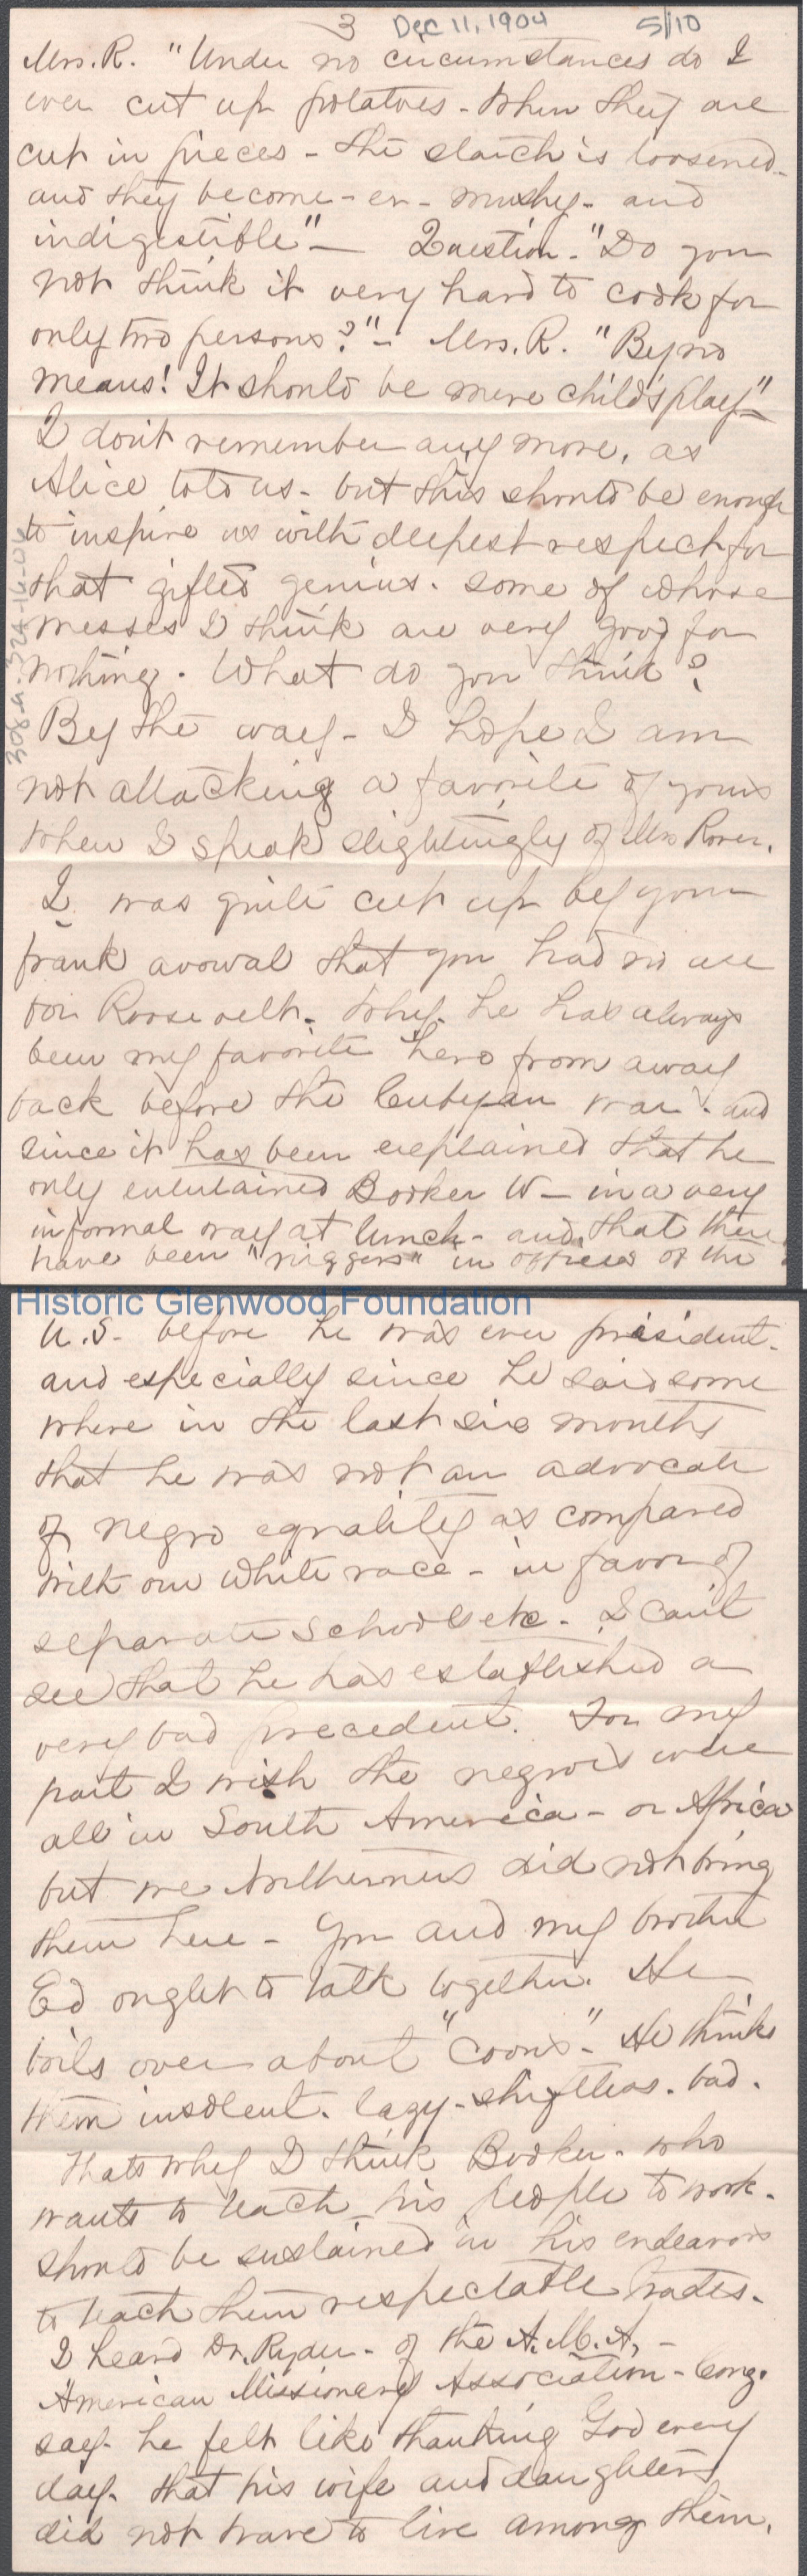 3 Dec 11, 1904 5/10
Mrs. R. "Under no circumstances do I
ever cut up potatoes - When they are
cut in pieces - the starch is loosened -
and they become - er - mushy - and
indigestible" - Question - "Do you
not think it very hard to cook for
only two persons?" - Mrs. R. "By no
means! It should be mere child's play" -
I don't remember any more, as
Alice told us - but this should be enough
to inspire us with deepest respect for
that gifted genius. some of whose
messes I think are very good for
nothing. What do you think?
By the way - I hope I am
not attacking a favorite of yours
when I speak slightingly of Mrs Rorer.
I was quite cut up by your
frank avowal that you had no use
for Roosevelt. Why - he has always
been my favorite hero from away
back before the Cubyan war - and
since it has been explained that he
only entertained Booker W - in a very
informal way at lunch - and that there
have been "niggers" in offices of the
308.4.324-16-04
Historic Glenwood Foundation
U.S. before he was ever president -
and especially since he said some
where in the last six months
that he was not an advocate
of negro equality as compared
with our white race - in favor of
separate schools etc - I can't
see that he has established a
very bad precedent. For my
part I wish the negroes were
all in South America - or Africa
but we Northerners did not bring
them here - You and my brother
Ed ought to talk together. He
boils over about "coons" - He thinks
them insolent. lazy - shiftless. bad.
Thats why I think Booker - who
wants to teach his people to work -
should be sustained in his endeavors
to teach them respectable trades.
I heard Dr. Ryder - of the A.M.A. -
American Missionary Association - Cong.
say - he felt like thanking God every
day - that his wife and daughters
did not have to live among them.